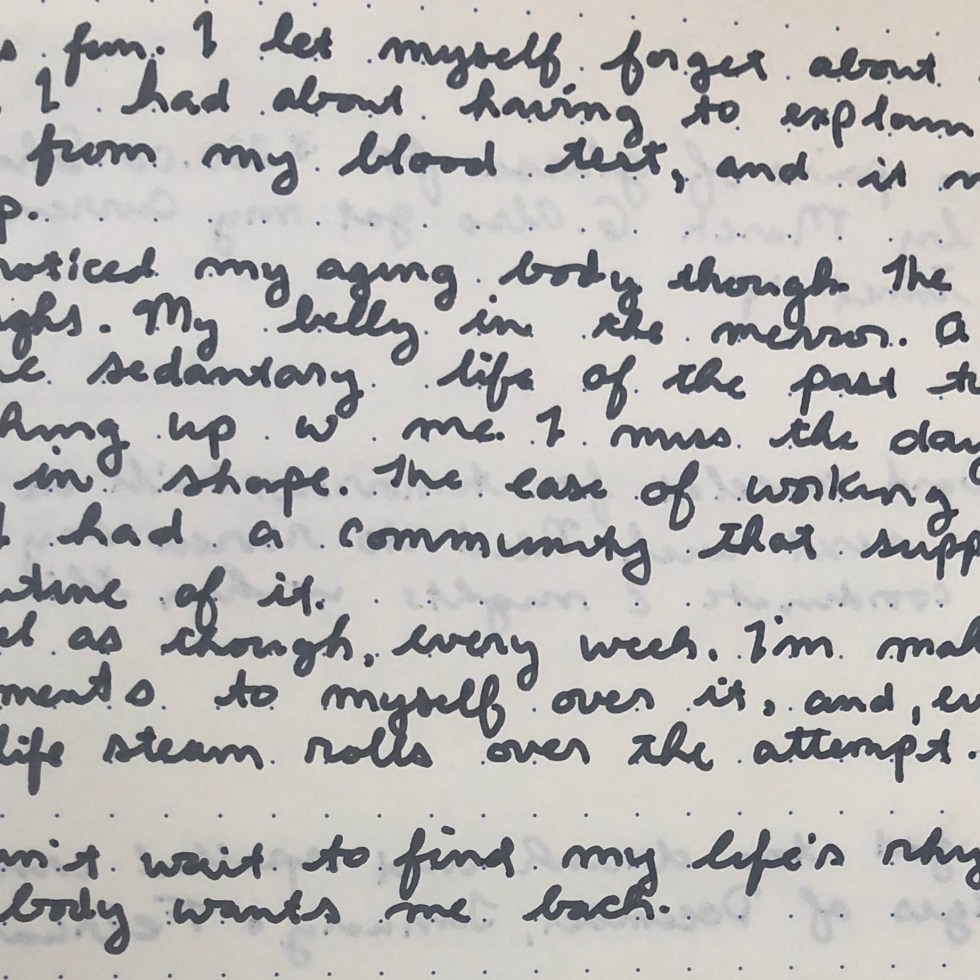 s fun. I let myself forget about
I had about having to explain
from my blood test, and it
p.
noticed my aging body though. The
ghs. My belly in the merror. A
sedantary life of the past
hing up w me. I miss the day
in shape. The ease of working
had a community that supp
utine of it.
el as though, every week, I'm mak
ments to myself over it, and, ev
life steam rolls over the attempt.
n't wait to find my life's rhy
body wants me back.